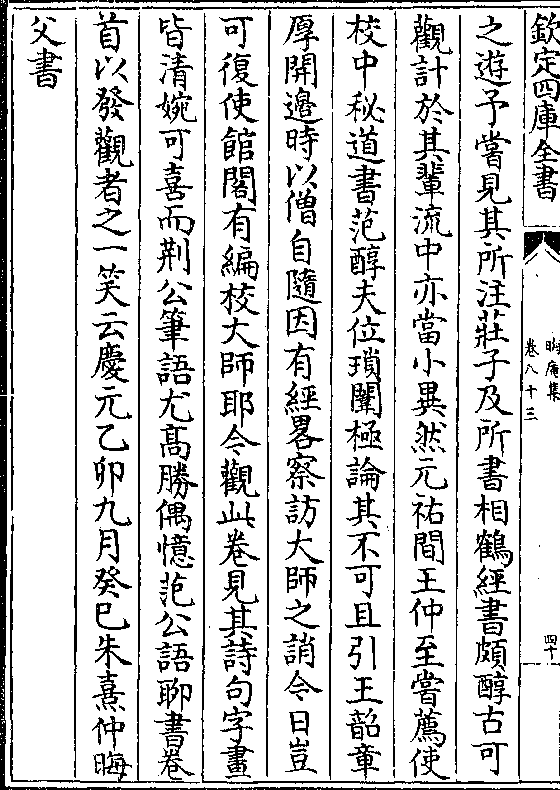 欽定四庫全書
晦庵集
卷八十三
四十
之遊予嘗見其所注莊子及所書相鶴經書頗醇古可
觀計於其輩流中亦當小異然元祐間王仲至嘗薦使
校中秘道書范醇夫位瑣闥極論其不可且引王韶章
厚開邉時以僧自隨因有經畧察訪大師之誚今日豈
可復使館閣有編校大師耶今觀此卷見其詩句字畫
皆清婉可喜而荆公筆語尤髙勝偶憶范公語聊書卷
首以發觀者之一笑云慶元乙卯九月癸巳朱熹仲晦
父書